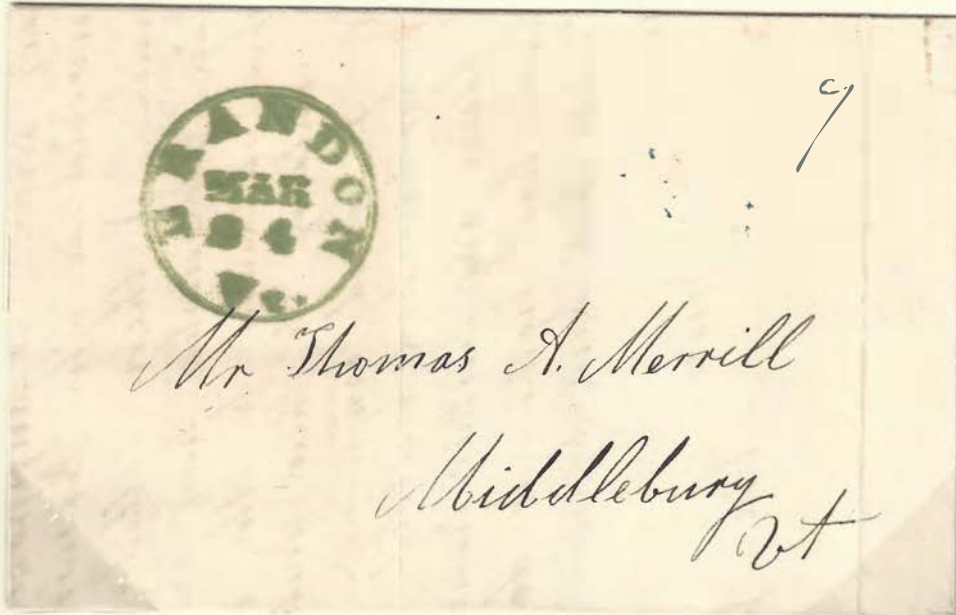 BRANDON
MAR
24
Vt.
Mr Thomas A. Merrill
Middlebury
Vt